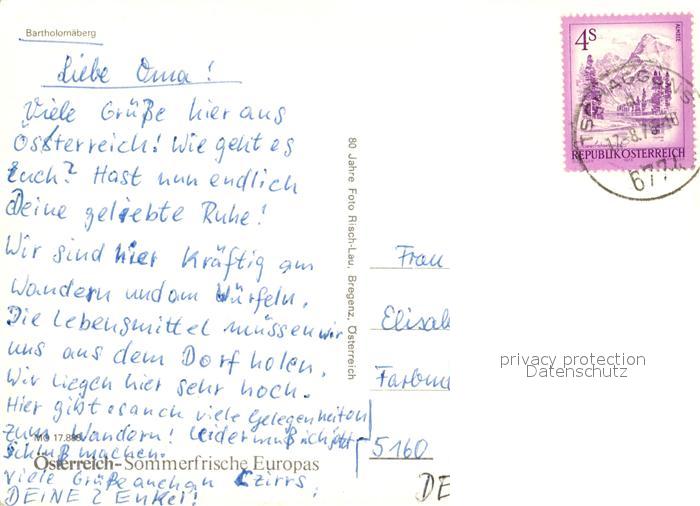 Bartholomäberg
Liebe Oma!
Viele Grüße hier aus
Össterreich! Wie geht es
Euch? Hast nun endlich
Deine geliebte Ruhe!
Wir sind hier Kräftig am
Wandern und am Würfeln.
Die Lebensmittel müssen wir
uns aus dem Dorf holen.
Wir liegen hier sehr hoch.
Hier gibt es auch viele Gelegenheiten
zum Wandern! Leider muß ich jetzt
Schluß machen.
MO 17.8
Österreich-Sommerfrische Europas
Viele Grüße auch an
DEINE 2 Enkel!
80 Jahre Foto Risch-Lau, Bregenz, Österreich
4S
ALMSEE
REPUBLIK ÖSTERREICH
TSCHAGGUNS
17.-8.7
677
Frau
Elisab
Farbm
5160
DE
privacy protection
Datenschutz